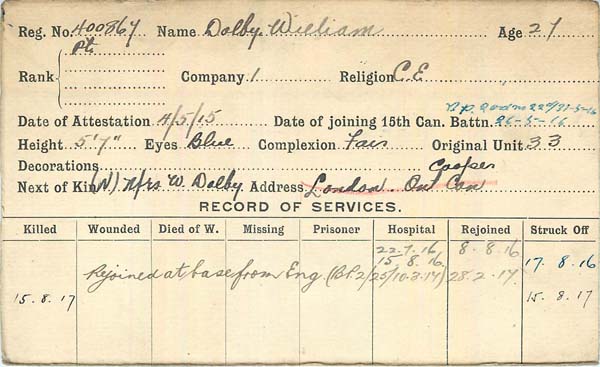 Reg. No. 400867 Name Dolby. William Age 27
Pte
Rank Company 1 Religion C.E.
Date of Attestation 4/5/15 Date of joining 15th Can. Battn. 26-5-16
Height 5'7" Eyes Blue Complexion Fair Original Unit 33
Decorations
Next of Kin (W) Mrs W. Dolby. Address London. Ont Can
RECORD OF SERVICES.
Killed Wounded Died of W. Missing Prisoner Hospital Rejoined Struck Off
22.7.16 8.8.16
15.8.16 17.8.16
Rejoined at base from Eng. (B.P.2/25/10.3.17) 28.2.17
15.8.17 15.8.17